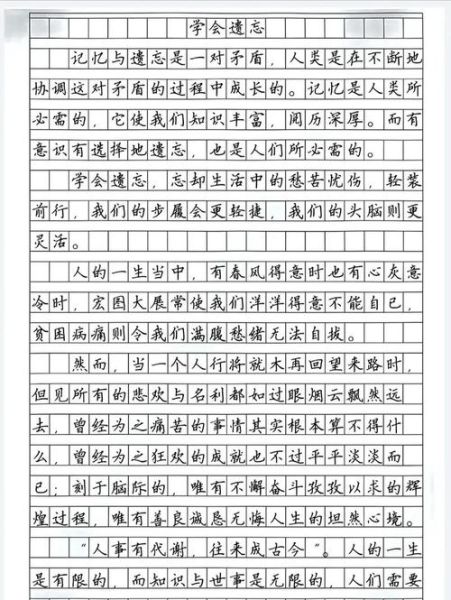 学会遗忘
记忆与遗忘是一对矛盾，人类是在不断地
协调这对矛盾的过程中成长的。记忆是人类所
必需的，它使我们知识丰富，阅历深厚。而有
意识有选择地遗忘，也是人们所必需的。
学会遗忘，忘却生活中的愁苦忧伤，轻装
前行，我们的步履会更轻捷，我们的头脑则更
灵活。
人的一生当中，有春风得意时也有心灰意
冷时，宏图大展常使我们洋洋得意不能自已，
贫困病痛则令我们满腹愁绪无法自拔。
然而，当一个人行将就木再回望来路时，
但见所有的悲欢与名利都如过眼烟云飘然远
去，曾经为之痛苦的事情其实根本算不得什
么，曾经为之狂欢的成就也不过平平淡淡而
已；刻于脑际的，唯有不懈奋斗孜孜以求的辉
煌过程，唯有善良诚恳无悔人生的坦然心境。
“人事有代谢，往来成古今”。人的一生
是有限的，而知识与世事是无限的，人们需要